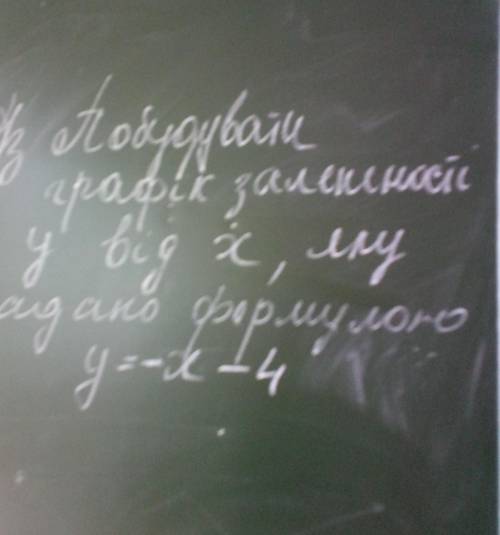 Побудувати
графік залежності
у від х, яку
адано формулою
y=-x-4